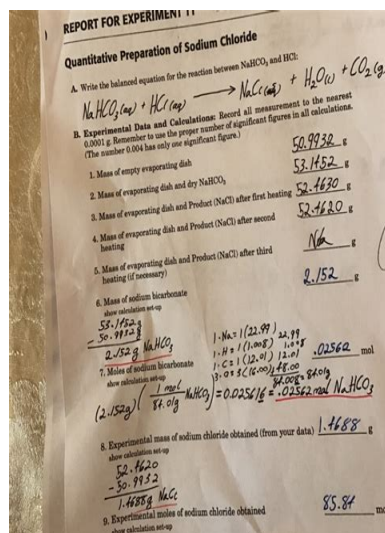 REPORT FOR EXPERIMENT 11
Quantitative Preparation of Sodium Chloride
A. Write the balanced equation for the reaction between NaHCO₃ and HCl:
NaHCO₃(aq) + HCl(aq) → NaCl(aq) + H₂O(l) + CO₂(g
B. Experimental Data and Calculations: Record all measurement to the nearest
0.0001 g. Remember to use the proper number of significant figures in all calculations.
(The number 0.004 has only one significant figure.)
1. Mass of empty evaporating dish 50.9932 g
2. Mass of evaporating dish and dry NaHCO₃ 53.1452 g
3. Mass of evaporating dish and Product (NaCl) after first heating 52.4630 g
4. Mass of evaporating dish and Product (NaCl) after second
heating 52.4620 g
5. Mass of evaporating dish and Product (NaCl) after third
heating (if necessary) g
6. Mass of sodium bicarbonate 2.152 g
show calculation set-up
53.1452g
- 50.9932g
2.152g NaHCO₃
1·Na = 1(22.99) 22.99
1·H = 1(1.008) 1.008
1·C = 1(12.01) 12.01
3·O = 3(16.00) 48.00
84.008 = 84.01g
7. Moles of sodium bicarbonate .02562 mol
show calculation set-up
(2.152g)(1 mol / 84.01g NaHCO₃) = 0.025616 = .02562 mol NaHCO₃
8. Experimental mass of sodium chloride obtained (from your data) 1.4688 g
show calculation set-up
52.4620
- 50.9932
1.4688g NaCl
9. Experimental moles of sodium chloride obtained 85.84 mo
show calculation set-up